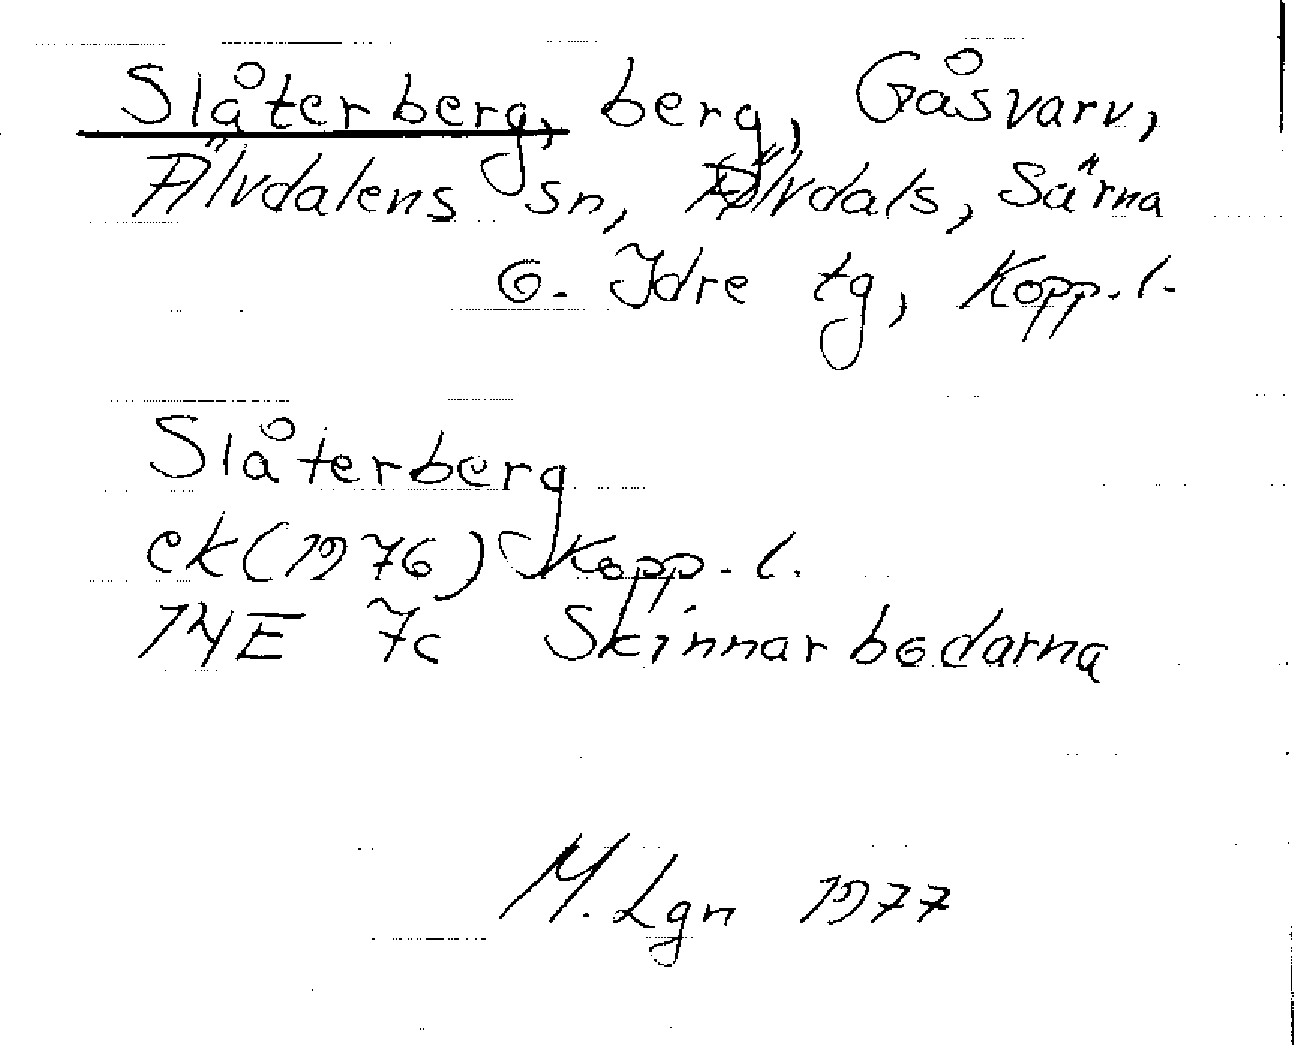 Slåterberg, berg, Gåsvarv,
Älvdalens sn, Älvdals, Särna
o. Idre tg, Kopp. l.
Slåterberg
ek (1976) Kopp. l.
14E 7c Skinnarbodarna
M. Lgn 1977